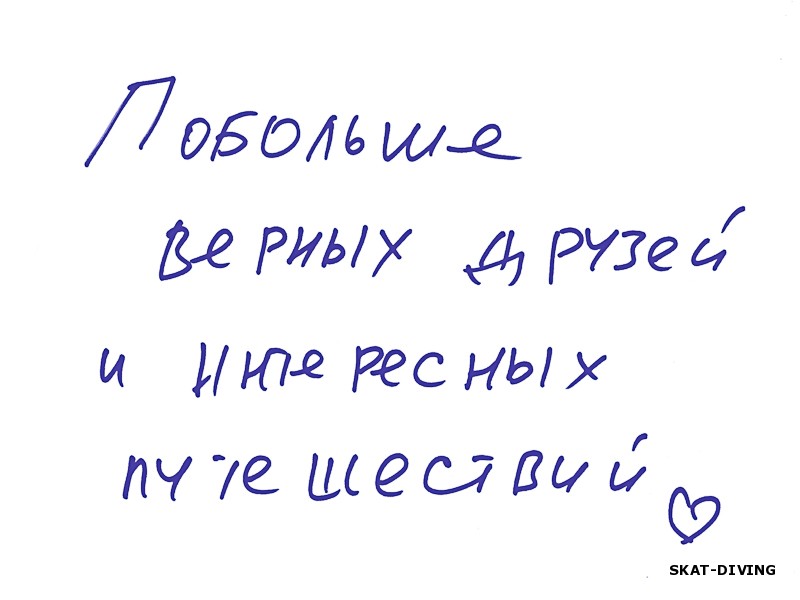 Побольше
верных друзей
и интересных
путешествий ♡
SKAT-DIVING